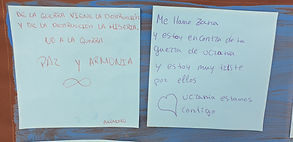 DE LA GUERRA VIENE LA DESTRUCCIÓN
Y DE LA DESTRUCCIÓN LA MISERIA.
NO A LA GUERRA
PAZ Y ARMONIA
Me llamo Zaira
y estoy encontra de la
guerra de ucrania
y estoy muy triste
por ellos
ucrania estamos
contigo